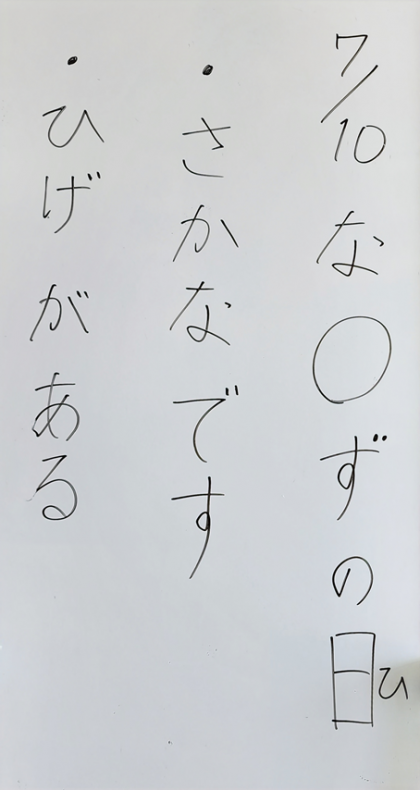 7/10 な○ずの日
ひ
・さかなです
・ひげがある